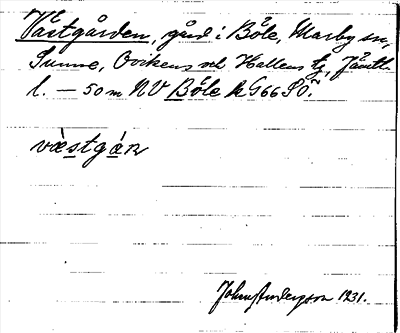 Västgården, gård i Böle, Marby sn,
Sunne, Oviken och Hallens tg, Jämtl.
l. — 50 m NV Böle k G66 SÖ.
västgán
John Anderzon 1931.